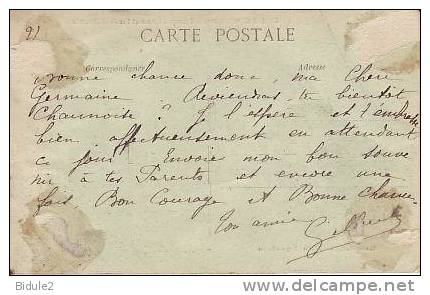 91
CARTE POSTALE
Correspondance Adresse
Bonne chance donc, ma Chère
Germaine Reviendas-tu bientôt
Chaunoise ? J l'espère et t'embrasse
bien affectueusement en attendant
ce jour Envoie mon bon souve
nir à tes Parents et encore une
fois Bon Courage et Bonne Chance.
Ton amie
Bidule2 www.delcampe.net